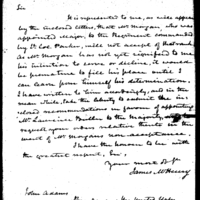 Sir
It is represented to me, as will appear
by the inclosed letters, that Mr Morgan, who was
appointed Major, to the Regiment commanded
by Lt Col. Parker, will not accept of that rank.
As Mr Morgan has not yet signified to me
his intention to serve, or decline, it would
be premature to fill his place until I
can learn from himself his determination.
I have written to him accordingly, and in the
mean while, take the liberty to submit the
recommendations in favour of appointing
Mr Laurence Butler to the Majority, and to
request your orders relative thereto in the
event of Mr Morgans non acceptance.
I have the honor to be with
the greatest respect, Sir,
Your most Ob St
James McHenry
John Adams
United States